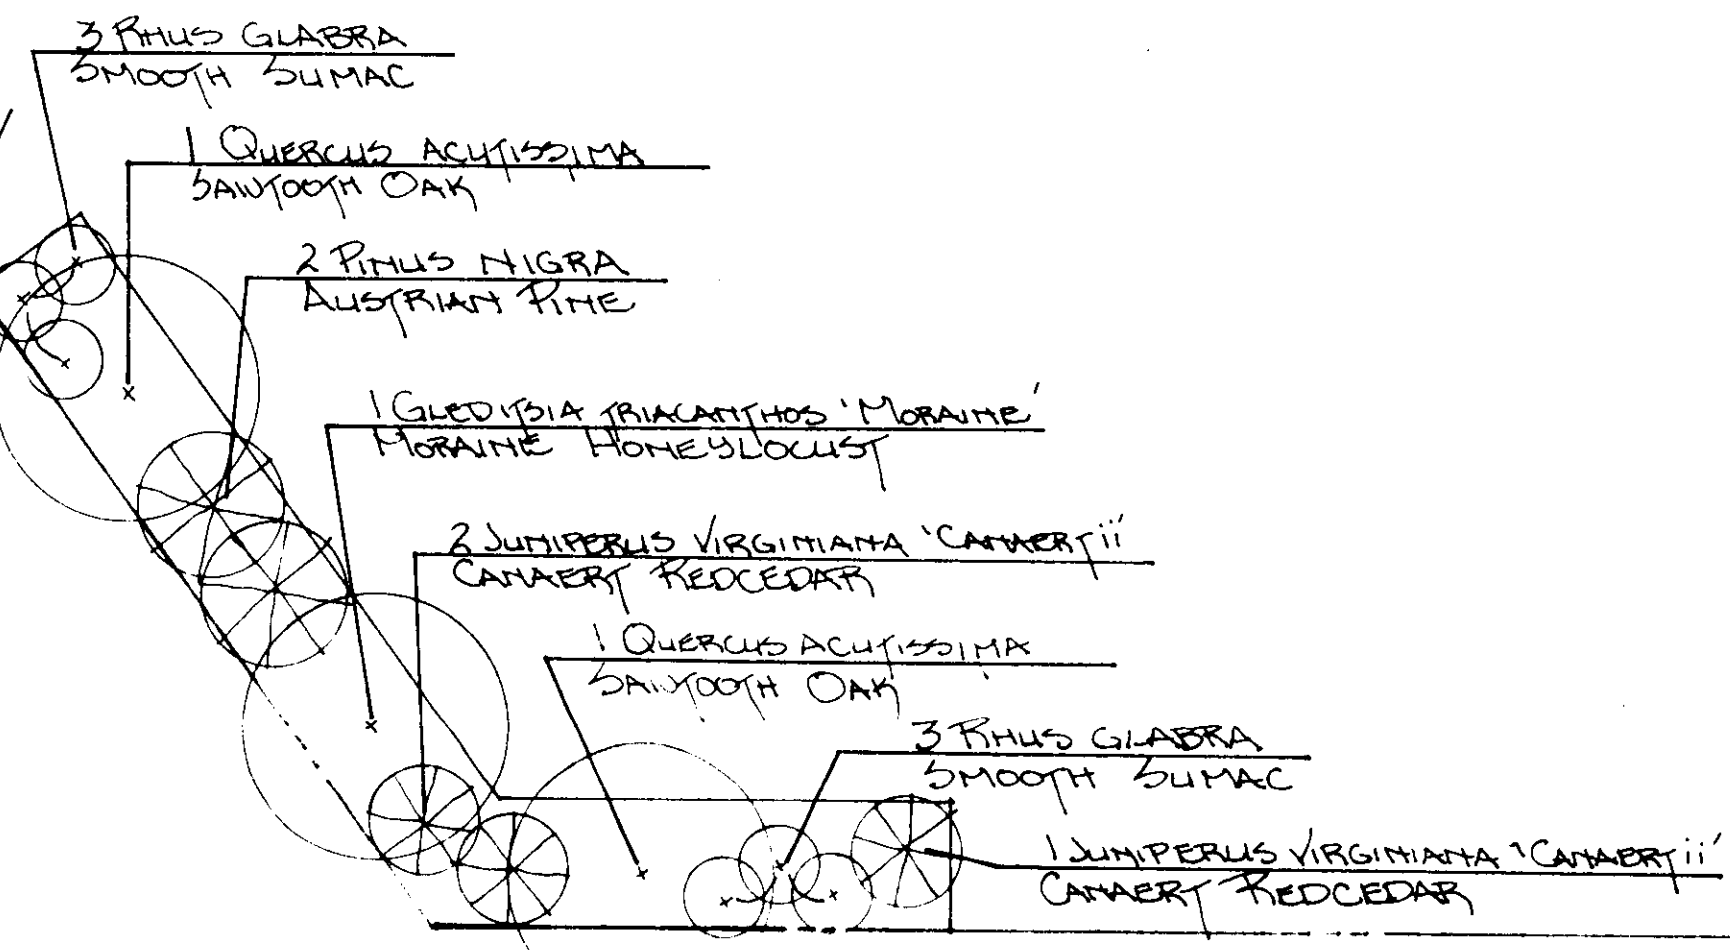 3 RHUS GLABRA
SMOOTH SUMAC
1 QUERCUS ACUTISSIMA
SAWTOOTH OAK
2 PINUS NIGRA
AUSTRIAN PINE
1 GLEDITSIA TRIACANTHOS 'MORAINE'
MORAINE HONEYLOCUST
2 JUNIPERUS VIRGINIANA 'CANAERTii'
CANAERT REDCEDAR
1 QUERCUS ACUTISSIMA
SAWTOOTH OAK
3 RHUS GLABRA
SMOOTH SUMAC
1 JUNIPERUS VIRGINIANA 'CANAERTii'
CANAERT REDCEDAR